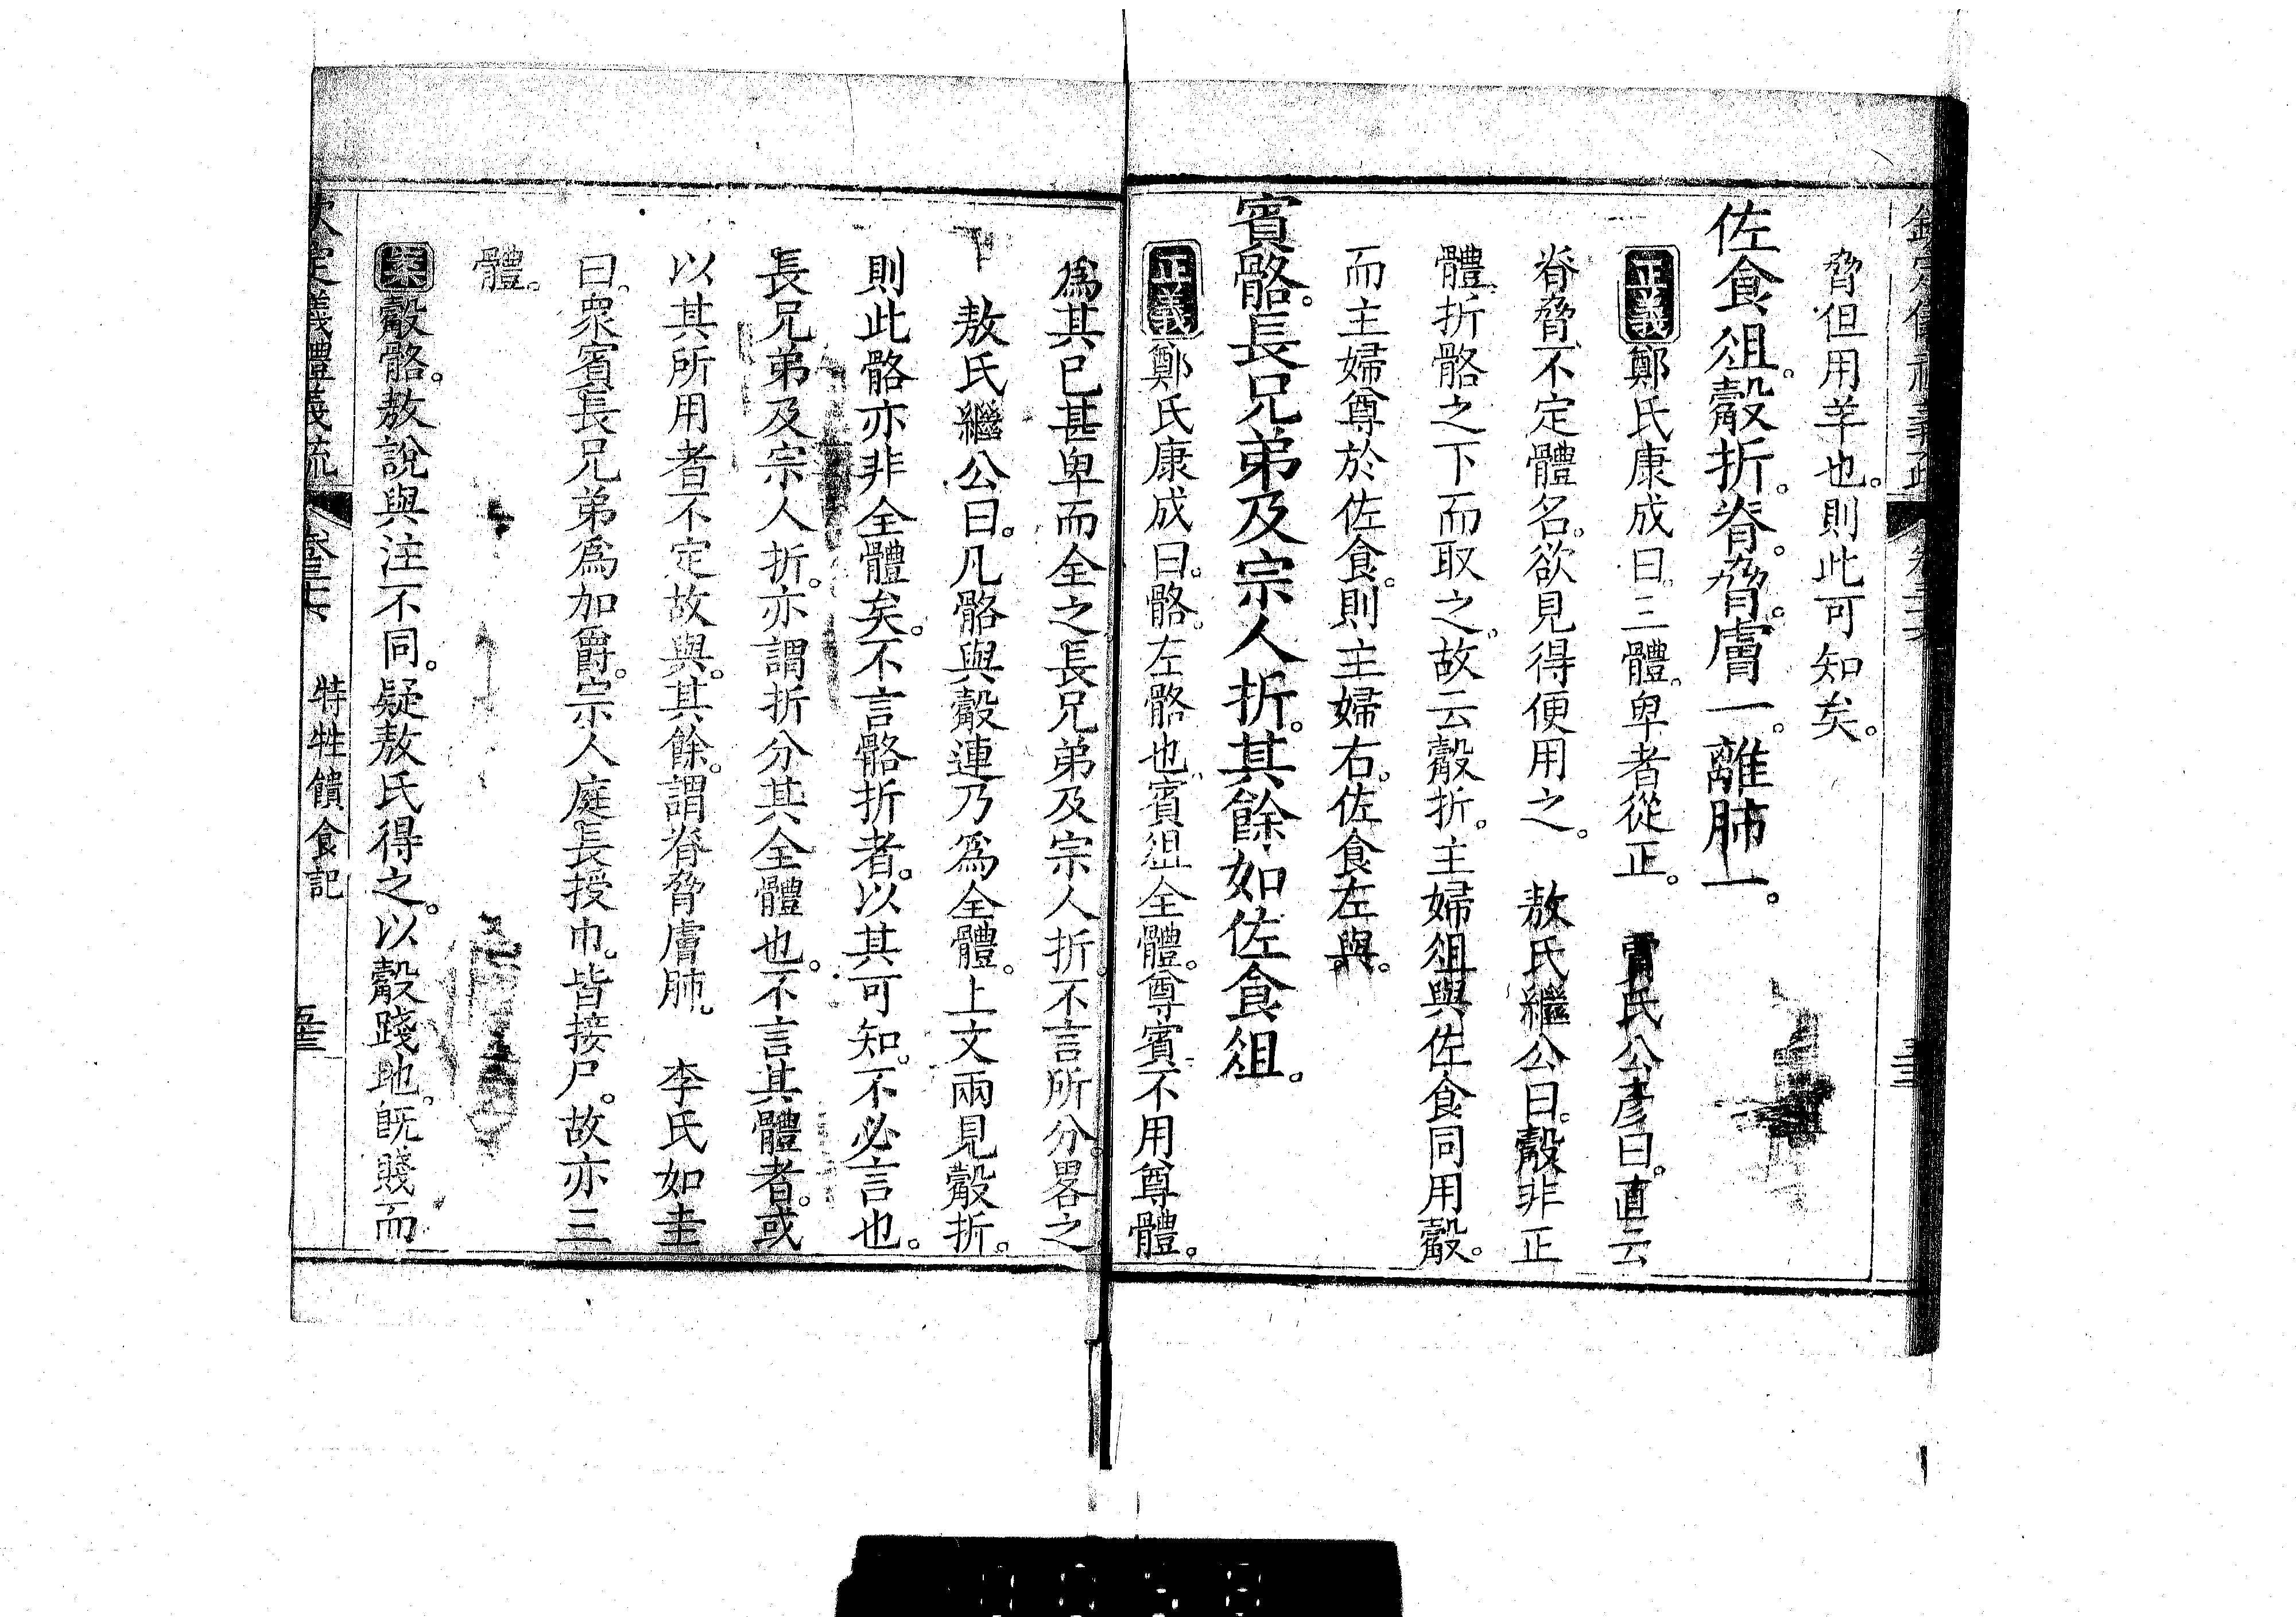 脅但用羊也。則此可知矣。
佐食俎。觳折。脊。脅。膚一。離肺一。
正義鄭氏康成曰。三體。卑者從正。 賈氏公彥曰。直云
脊脅。不定體名。欲見得便用之。 敖氏繼公曰。觳非正
體。折骼之下而取之。故云觳折。主婦俎與佐食同用觳。
而主婦尊於佐食。則主婦右。佐食左與。
賓骼。長兄弟及宗人折。其餘如佐食俎。
正義鄭氏康成曰。骼。左骼也。賓俎全體。尊賓。不用尊體。
為其已甚卑而全之。長兄弟及宗人折。不言所分。畧之
敖氏繼公曰。凡骼與觳連乃為全體。上文兩見觳折。
則此骼亦非全體矣。不言骼折者。以其可知。不必言也。
長兄弟及宗人折。亦謂折分其全體也。不言其體者。或
以其所用者不定故與。其餘。謂脊脅膚肺。 李氏如圭
曰。眾賓長兄弟為加爵。宗人庭長授巾。皆接尸。故亦三
體。
案觳骼。敖說與注不同。疑敖氏得之。以觳踐地。既賤而
特牲饋食記